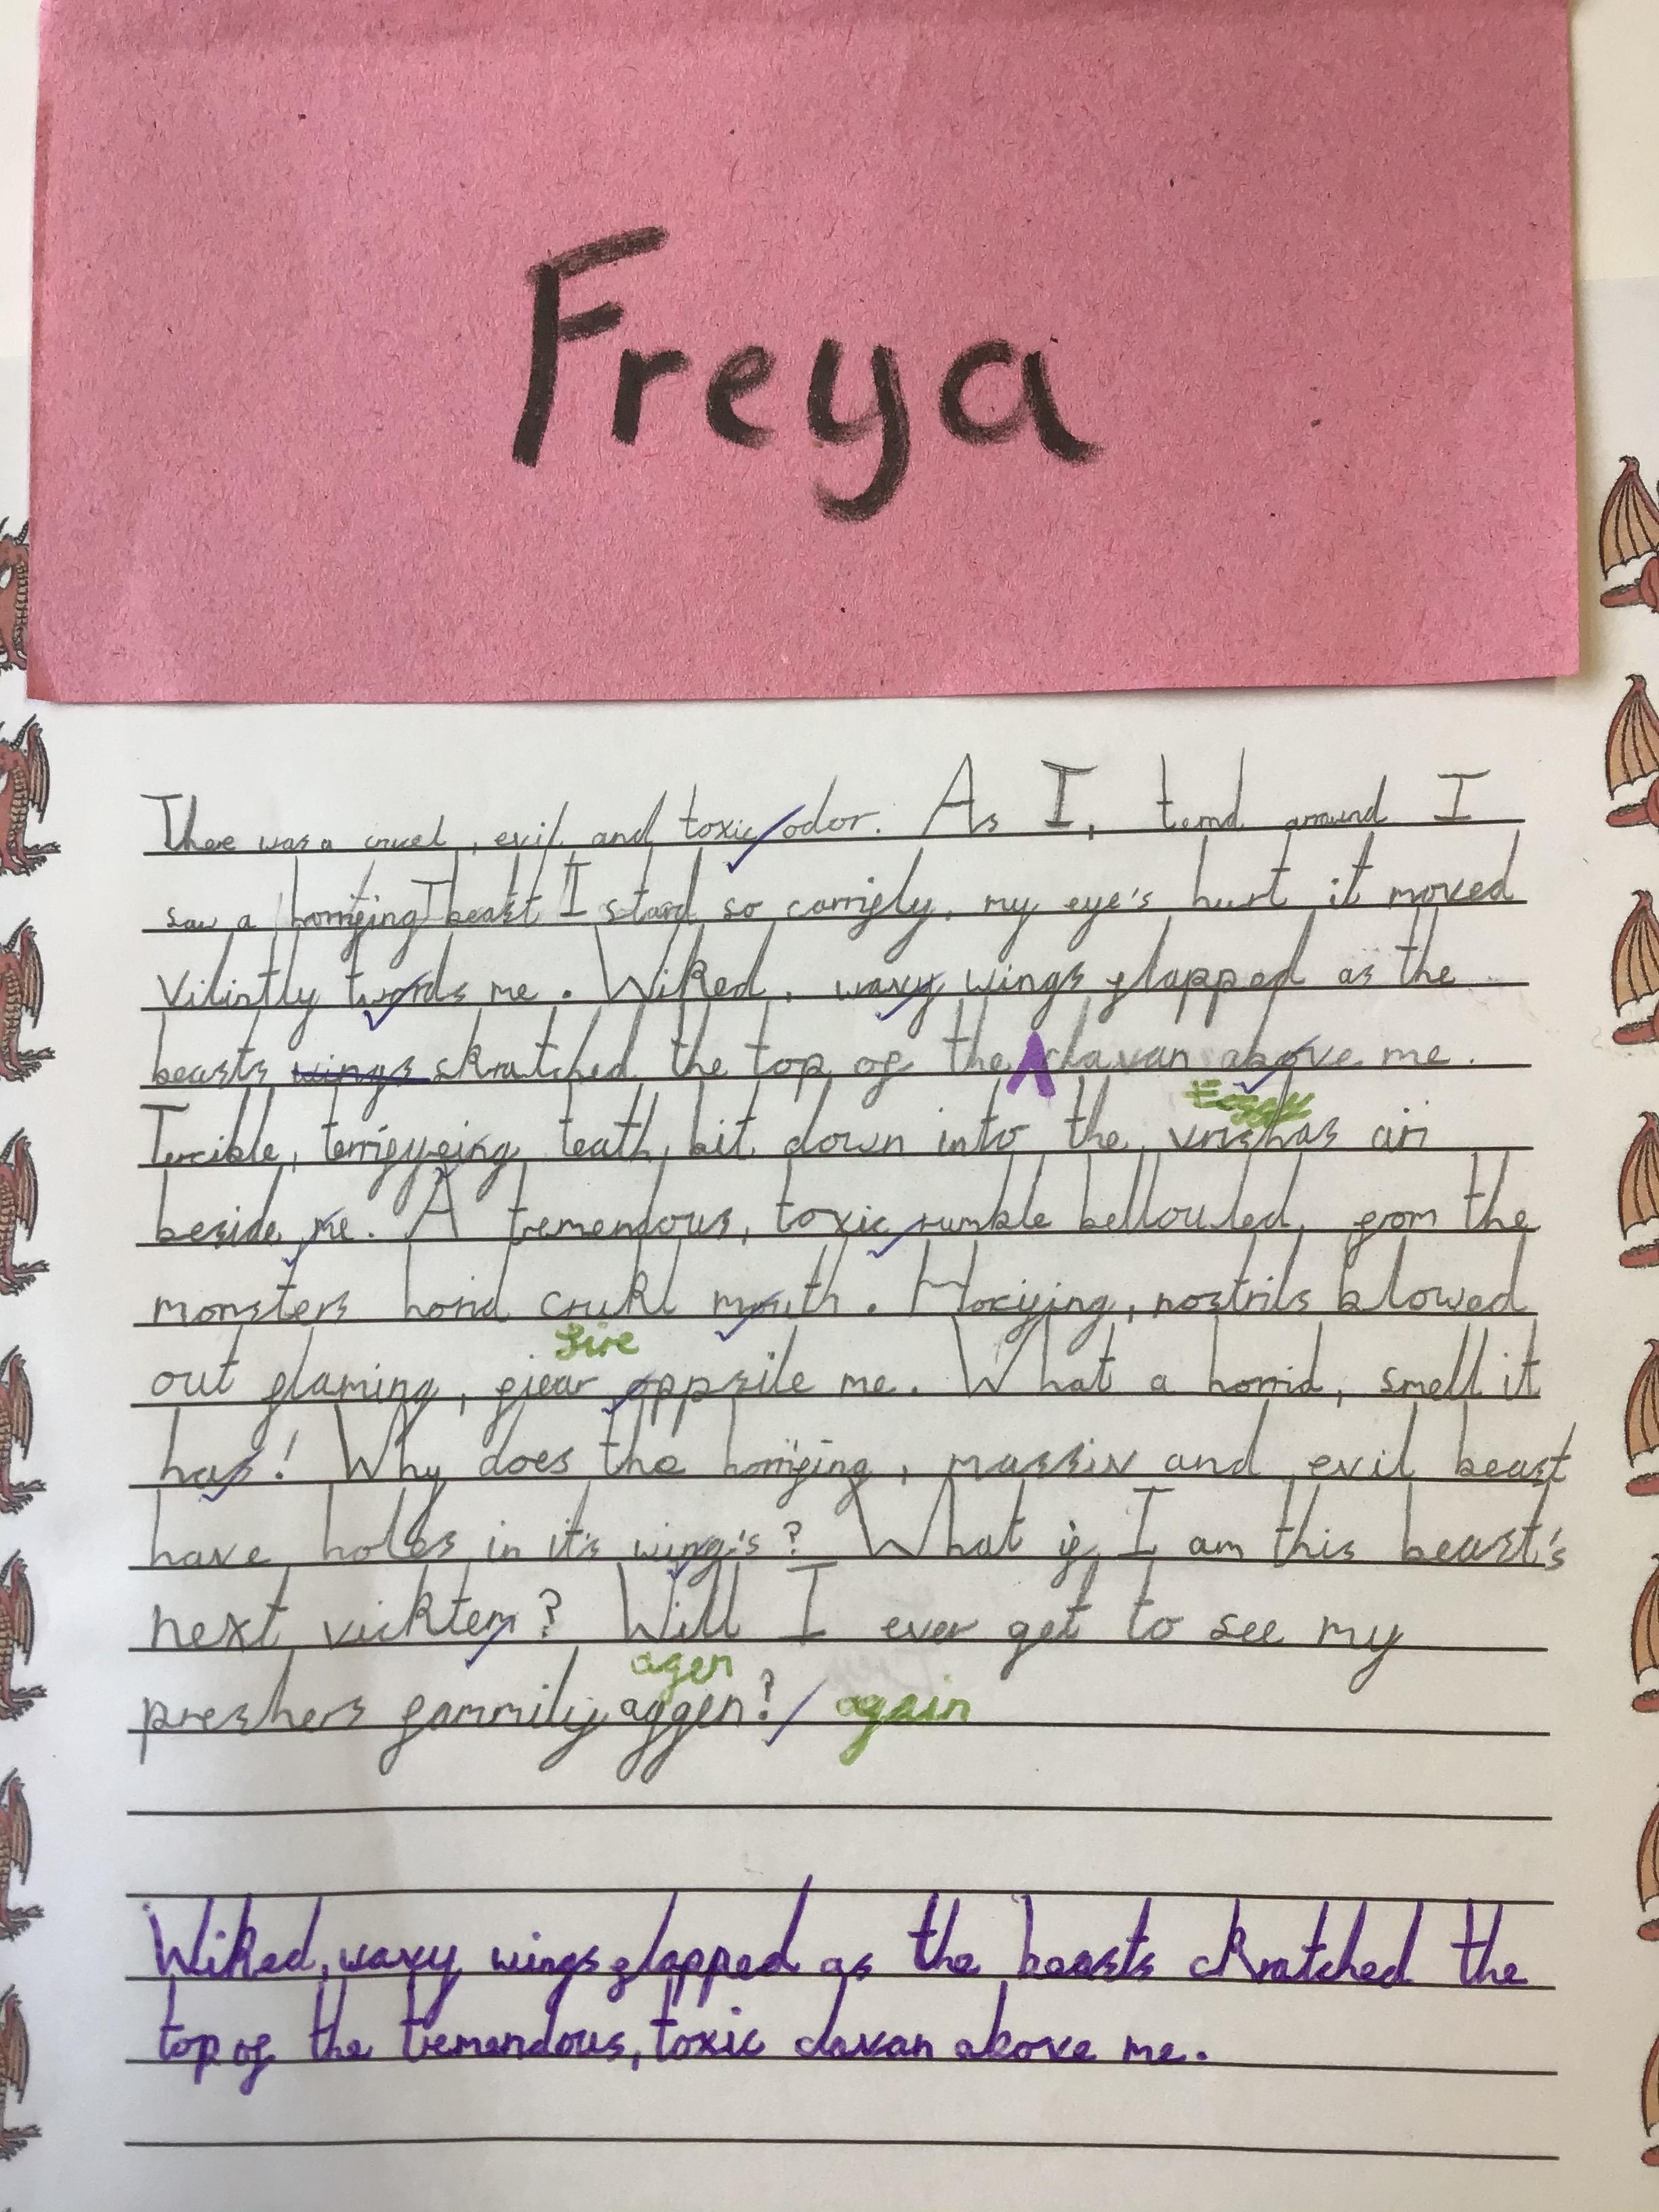 Freya
There was a cruel, evil and toxic odor. As I, ternd around I
saw a horrifing beast I stard so carrifly, my eye's hurt it moved
Vilintly twords me. Wiked, waxy wings flapped as the
beasts wings skratched the top of the clavan above me.
Foggy
Terrible, terrifyeing teath bit down into the air
beside me. A tremendous, toxic rumble bellouled, from the
monsters horrid crukl mouth. Horifying, nostrils blowed
fire
out flaming, fiear oppsite me. What a horrid, smell it
has! Why does the horrifing, massiv and evil beast
have holes in it's wing's? What if I am this beast's
next vicktem? Will I ever get to see my
agen
preshers fammily aggen? again
Wiked, waxy wings flapped as the beasts skratched the
top of the tremendous, toxic clavan above me.